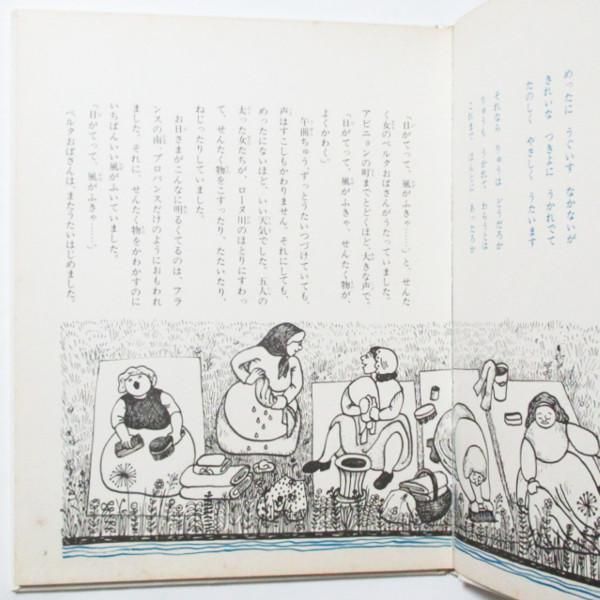 めったに うぐいす なかないが
きれいな つきよに うかれでて
たのしく やさしく うたいます
それなら りゅうは どうだろか
りゅうも うかれて わらうとは
これまで ほんとに あったろか
「日がてって、風がふきゃ……」と、せんた
く女のベルタおばさんがうたっていました。
アビニョンの町までとどくほど、大きな声で。
「日がてって、風がふきゃ、せんたく物が、
よくかわく」
午前ちゅう、ずっとうたいつづけていても、
声はすこしもかわりません。それにしても、
めったにないほど、いい天気でした。五人の
太った女たちが、ローヌ川のほとりにすわっ
て、せんたく物をこすったり、たたいたり、
ねじったりしていました。
お日さまがこんなに明るくてるのは、フラ
ンスの南、プロバンスだけのようにおもわれ
ました。それに、せんたく物をかわかすのに
いちばんいい風がふいていました。
「日がてって、風がふきゃ……」
ベルタおばさんは、またうたいはじめました。
3